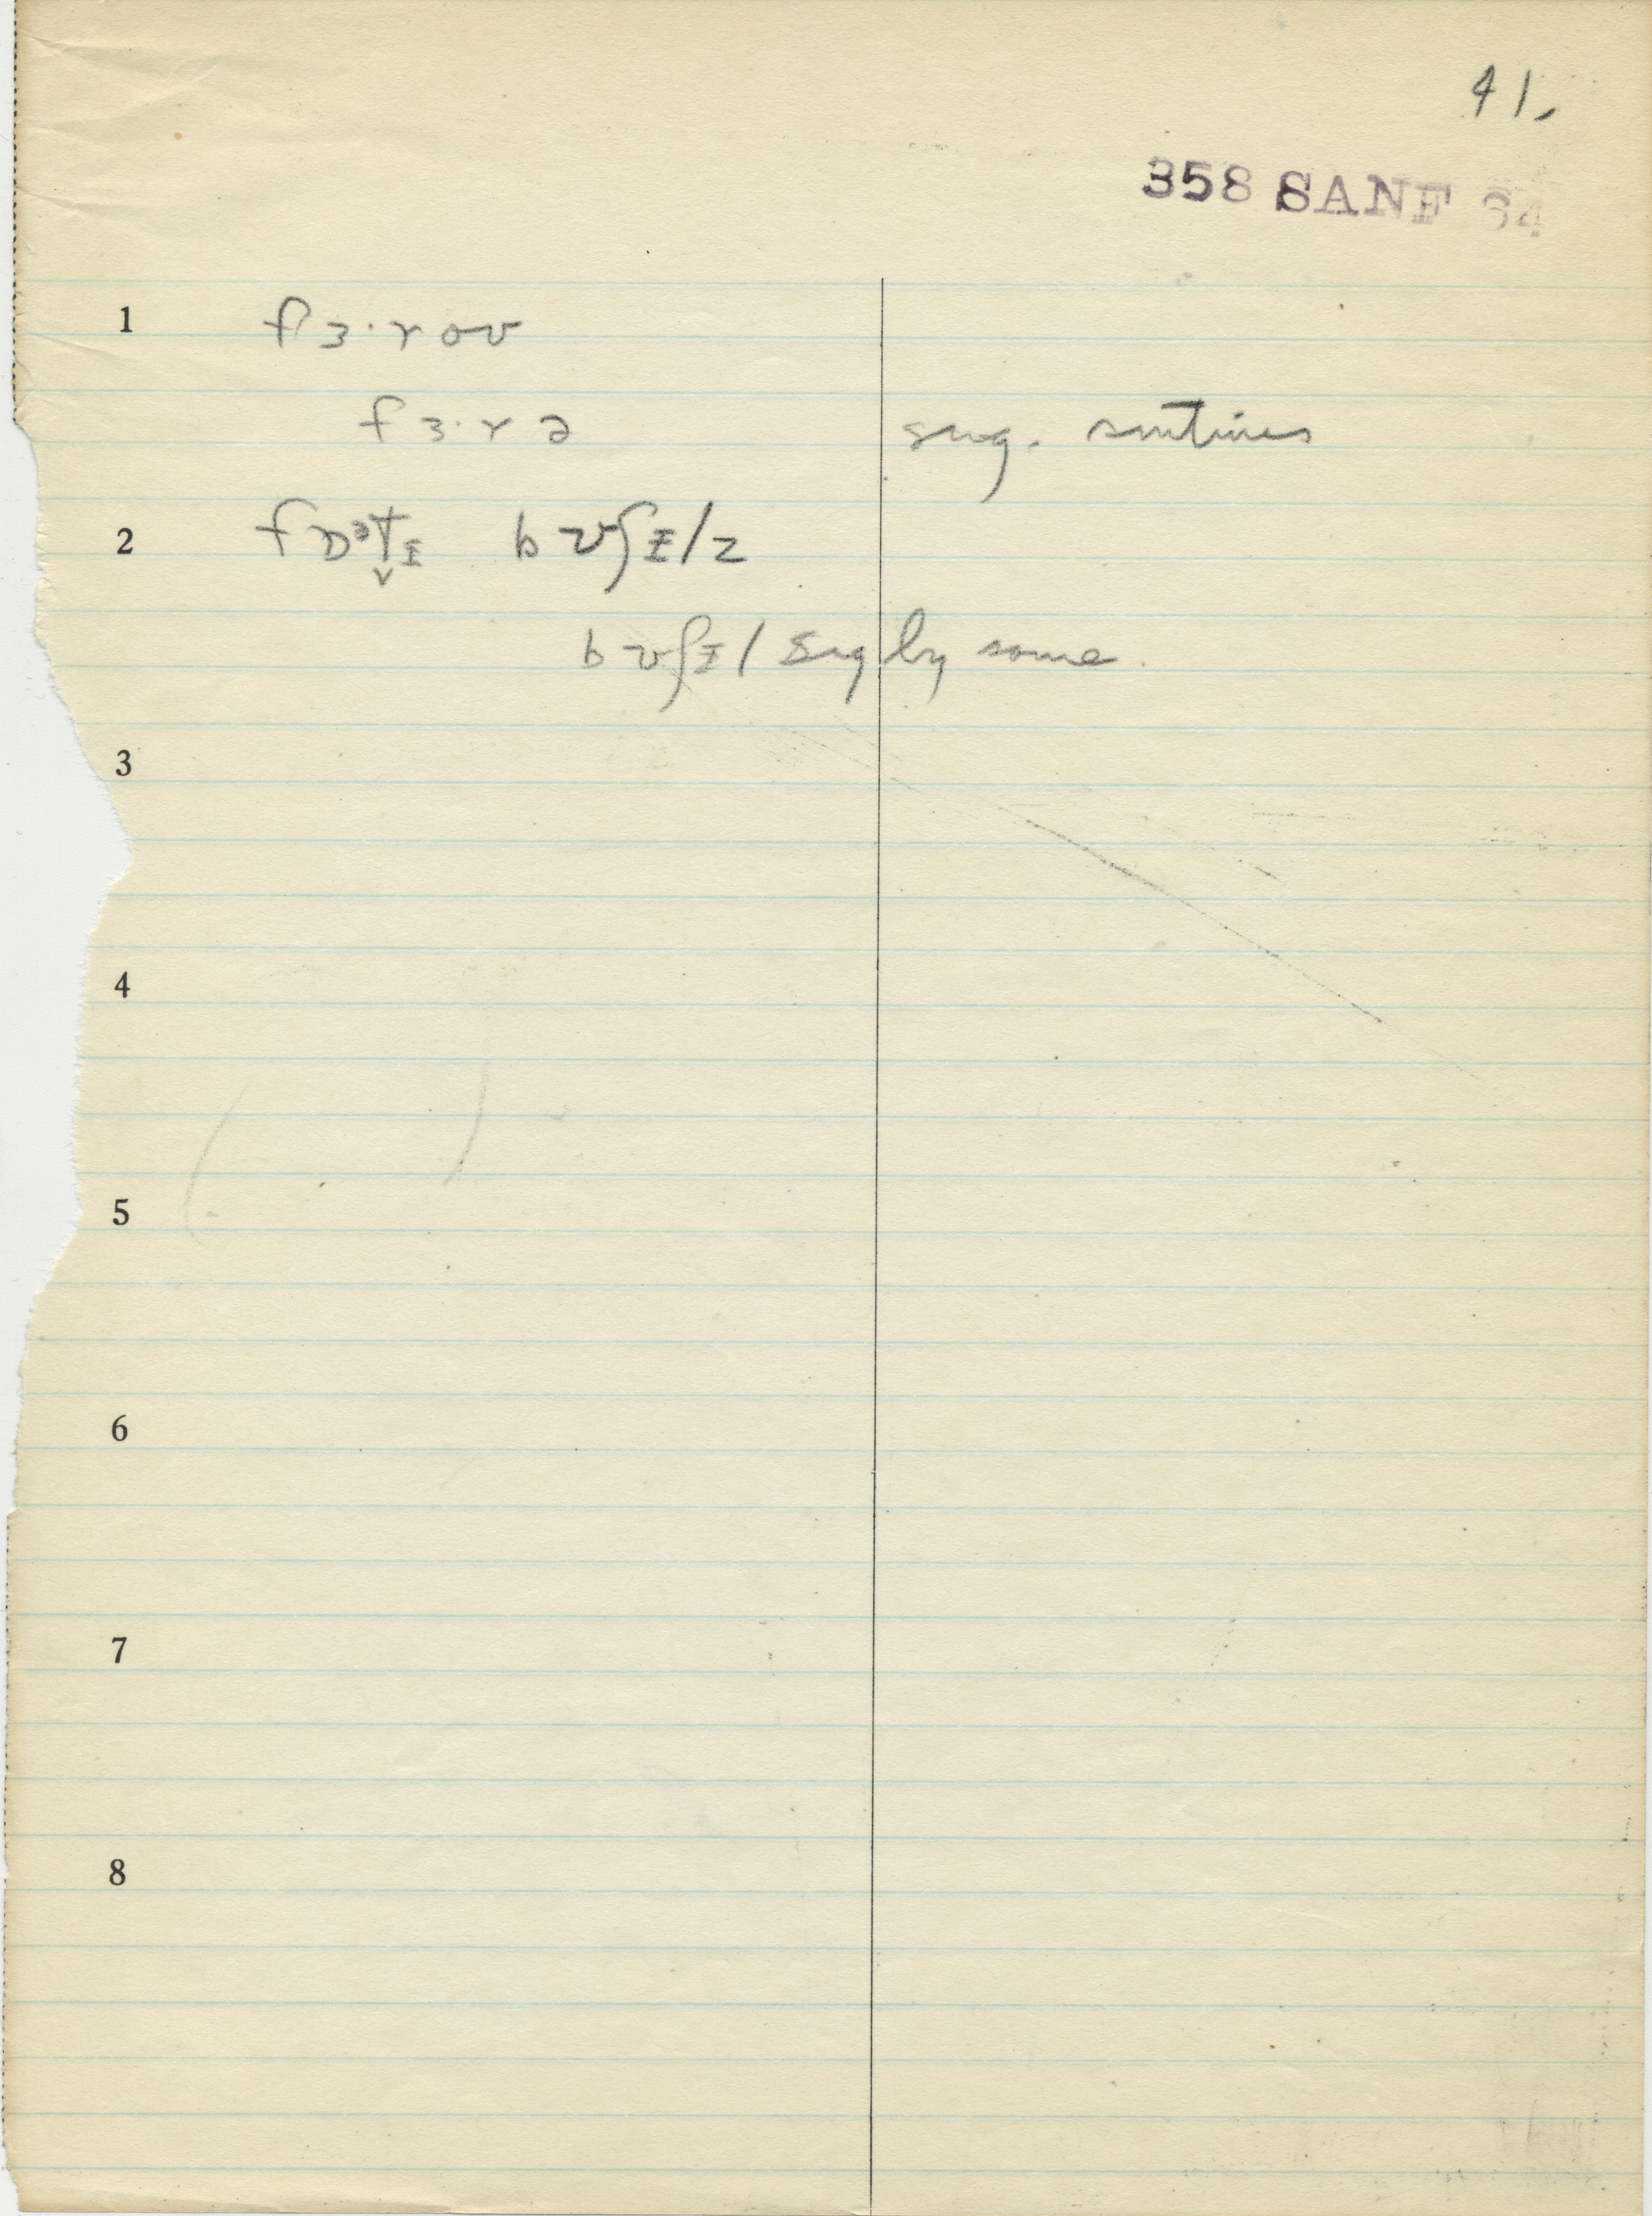 41.
358 SANF 64
1 fɜ·roʊ
fɜ·rə sug. sometimes
2 bʊʃᵻlz
bʊʃᵻl sug by some.
3
4
5
6
7
8